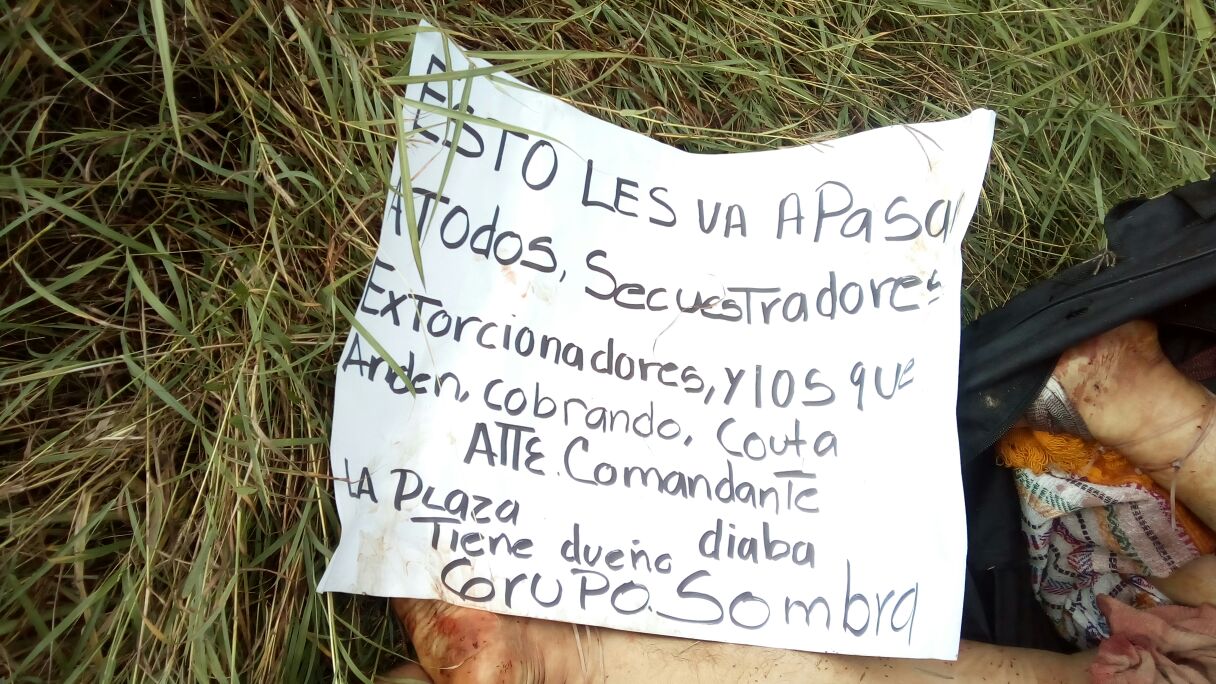 ESTO LES VA A PASAR
A TODOS, SECUESTRADORES
EXTORCIONADORES, Y LOS QUE
Anden, cobrando, couta
ATTE. Comandante
LA PLAZA diaba
Tiene dueño
GRUPO. Sombra